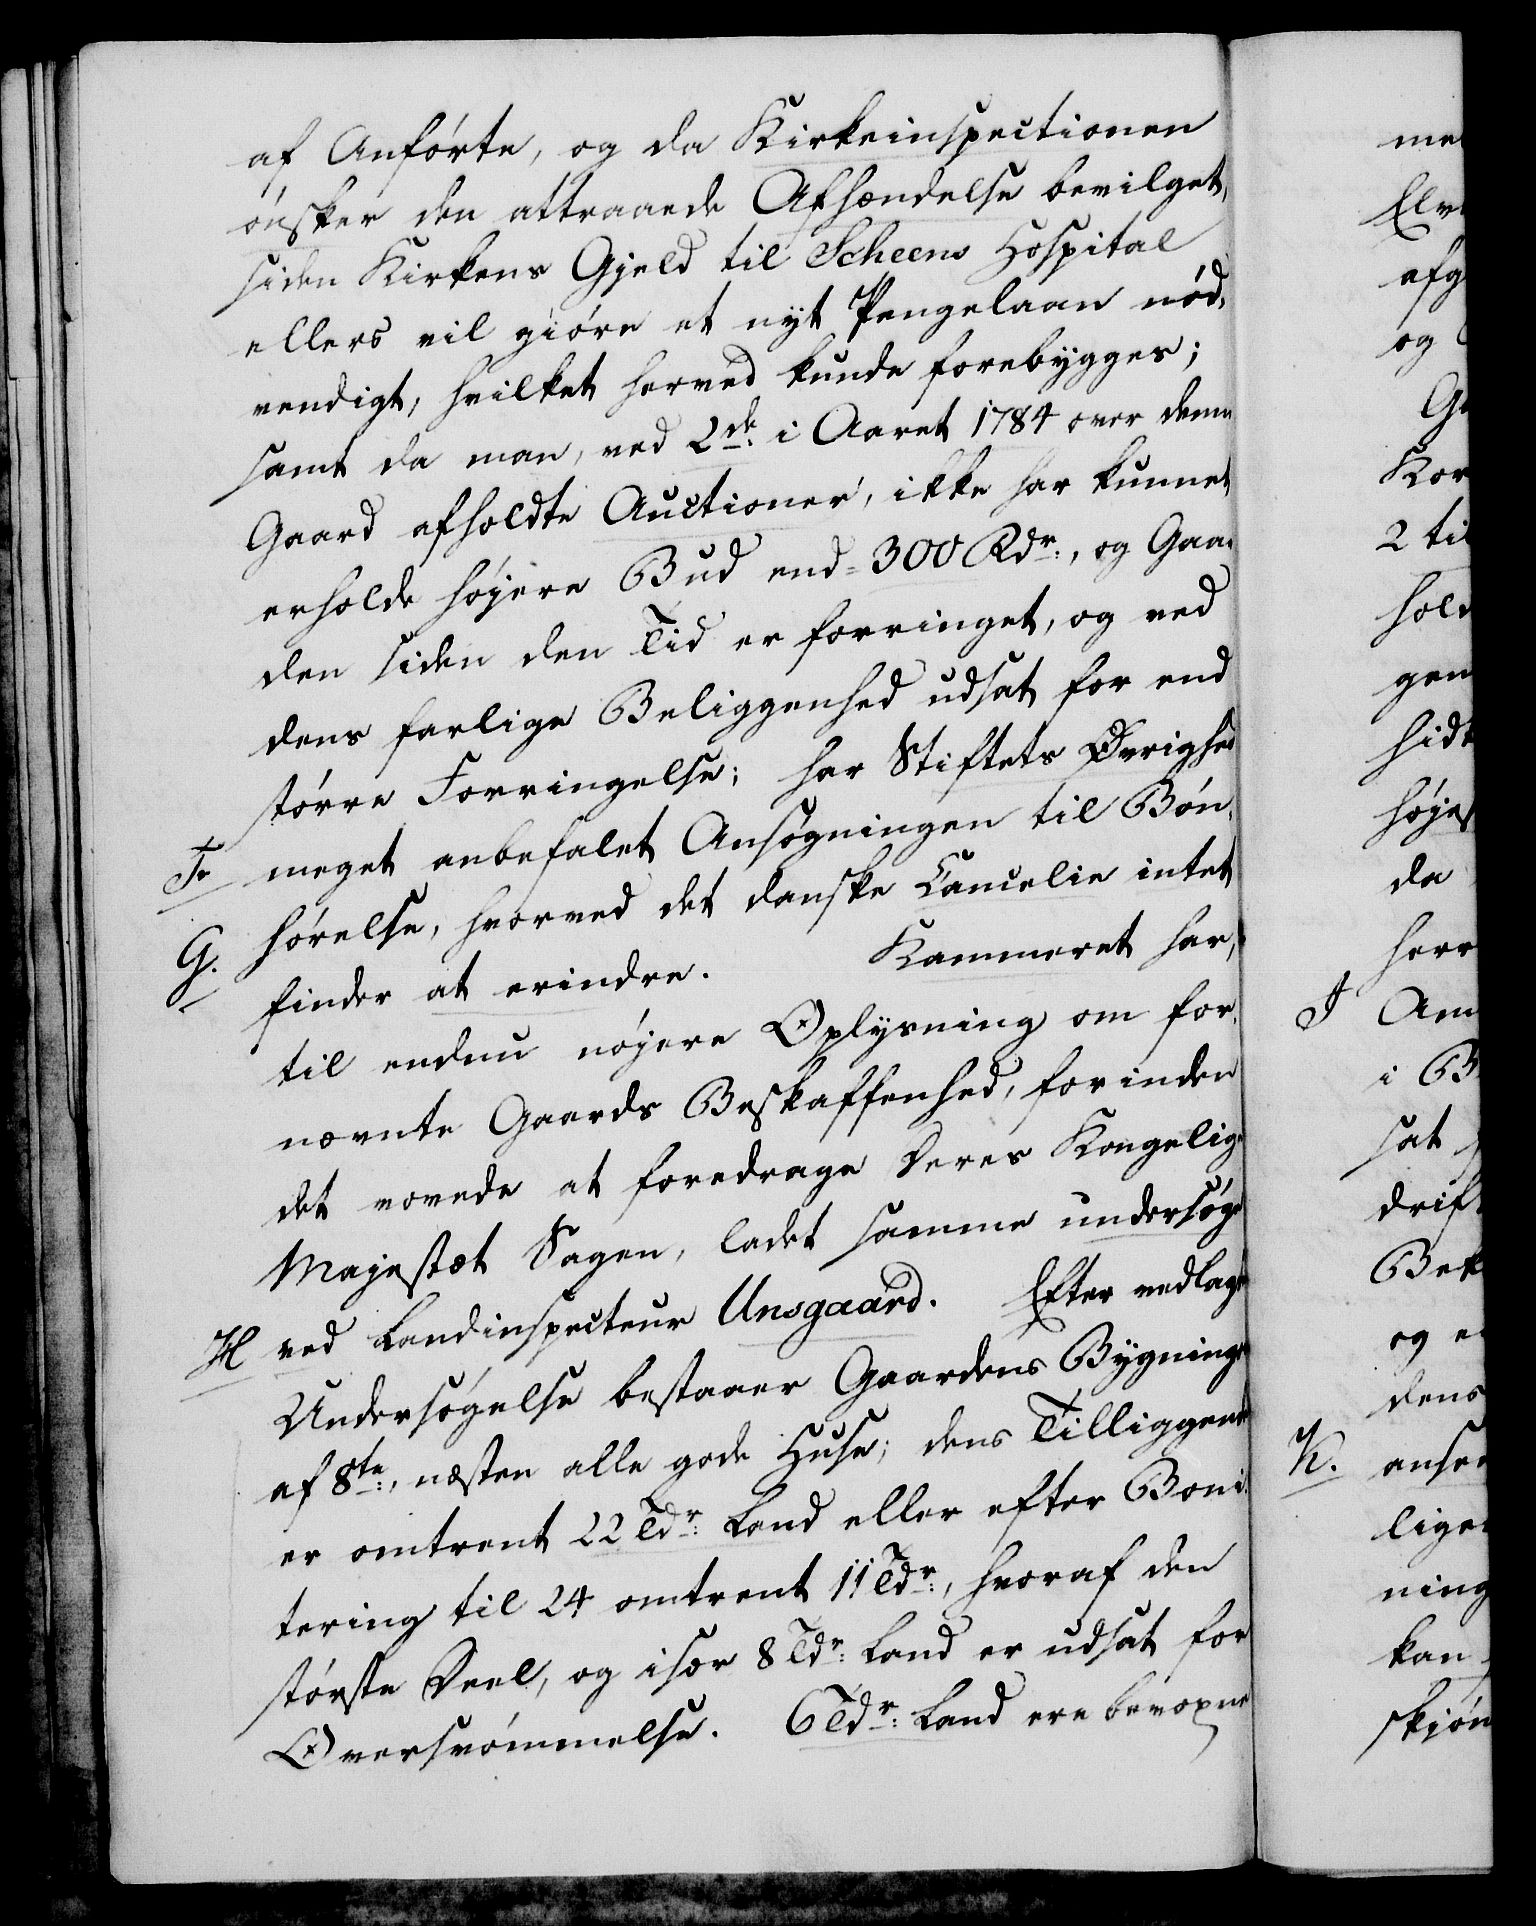 af Anførte, og da Kirkeinspectionen
ønsker den attraaede Afhændelse bevilget,
siden Kirkens Gjeld til Scheens Hospital
ellers vil giøre et nyt Pengelaan nød-
vendigt, hvilket herved kunde forebygges;
samt da man, ved 2de: i Aaret 1784 over denne
Gaard afholdte Auctioner, ikke har kunnet
erholde højere Bud end 300 Rdr:, og Gaar-
den siden den Tid er forringet, og ved
dens farlige Beliggenhed udsat for end
større Forringelse; har Stiftets Øvrighed
F. meget anbefalet Ansøgningen til Bøn-
G. hørelse, hvorved det danske Cancelie intet
finder at erindre. Kammeret har,
til endnu nøjere Oplysning om for-
nævnte Gaards Beskaffenhed, forinden
det vovede at foredrage Deres Kongelige
Majestæt Sagen, ladet samme undersøge
H ved Landinspecteur Unsgaard. Efter vedlagte
Undersøgelse bestaaer Gaardens Bygninger
af 8te:, næsten alle gode Huse; dens Tilliggende
er omtrent 22 Tdr: Land eller efter Boni-
tering til 24 omtrent 11 Tdr:, hvoraf den
største Deel, og især 8 Tdr: Land er udsat for
Oversvømmelse. 6 Tdr: Land ere bevoxne
og
2 til
da
J
i
sat
og
dens
K.
kan